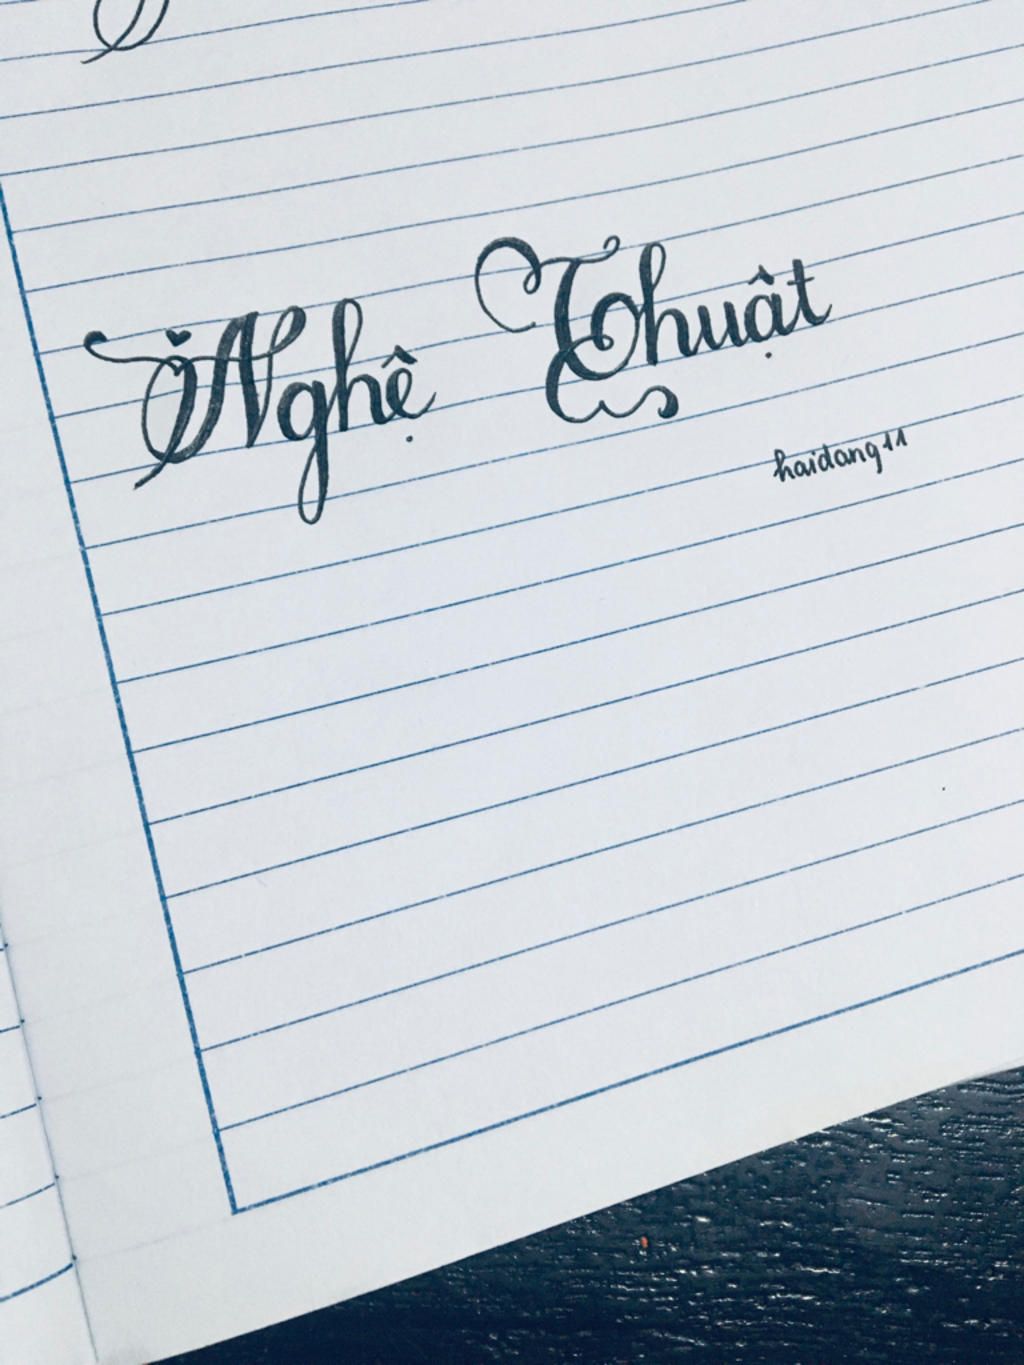 Nghệ Thuật
haidang11